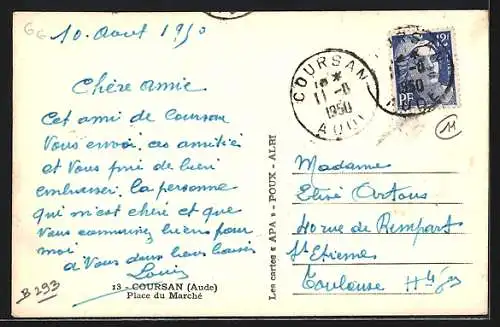 10. Aout 1950
Chère amie
Cet ami de Coursan
Vous envoi, ces amitiés
et Vous prie de bien
embrasser. la personne
qui m'est chéré et que
Vous connaissez biens pour
moi
à Vous deux bons baisers
Louis
B 293
13 - COURSAN (Aude)
Place du Marché
Les cartes « APA » - POUX - ALBI
COURSAN
11-8
1950
AUDE
12F
PF
11
Madame
Elise
40 rue de Rempart
St Etienne
Toulouse Hte